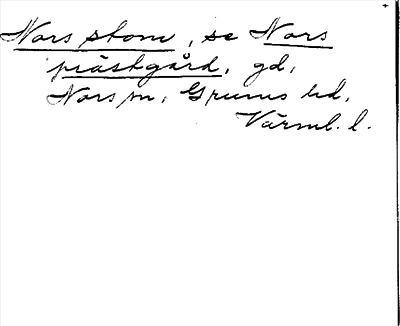 Nors stom, se Nors
prästgård, gd,
Nors sn, Grums hd,
Värml. l.